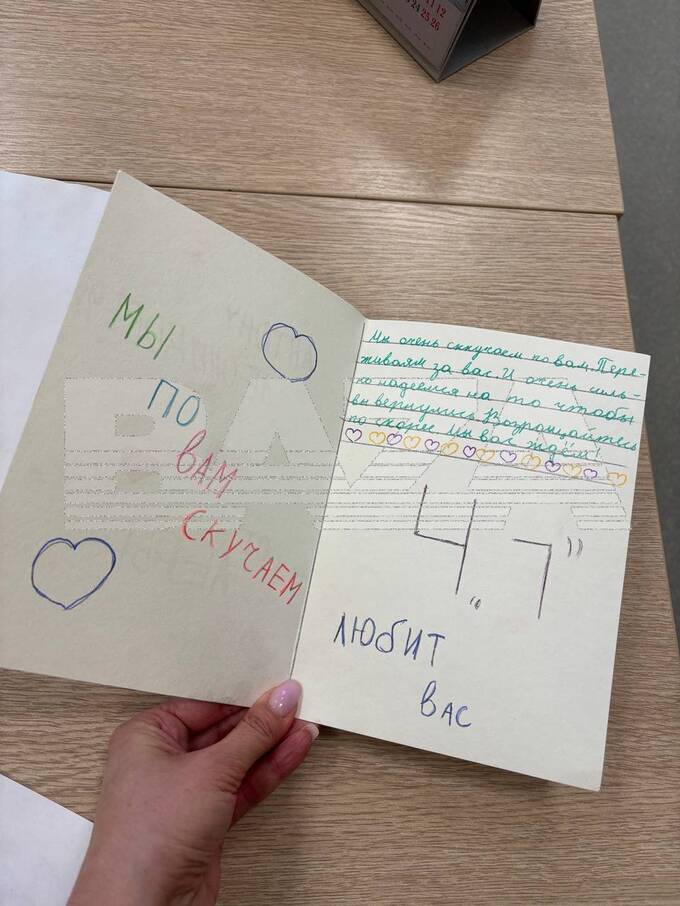 11 12
24 25 26
МЫ
ПО
ВАМ
СКУЧАЕМ
Мы очень сккучаем по вам. Пере-
живаям за вас. И очень силь-
но надеемся на то чтобы
вы вернулись Возвращайтесь
по скорее Мы вас ждём!
4 "Г"
ЛЮБИТ
ВАС
BAZA